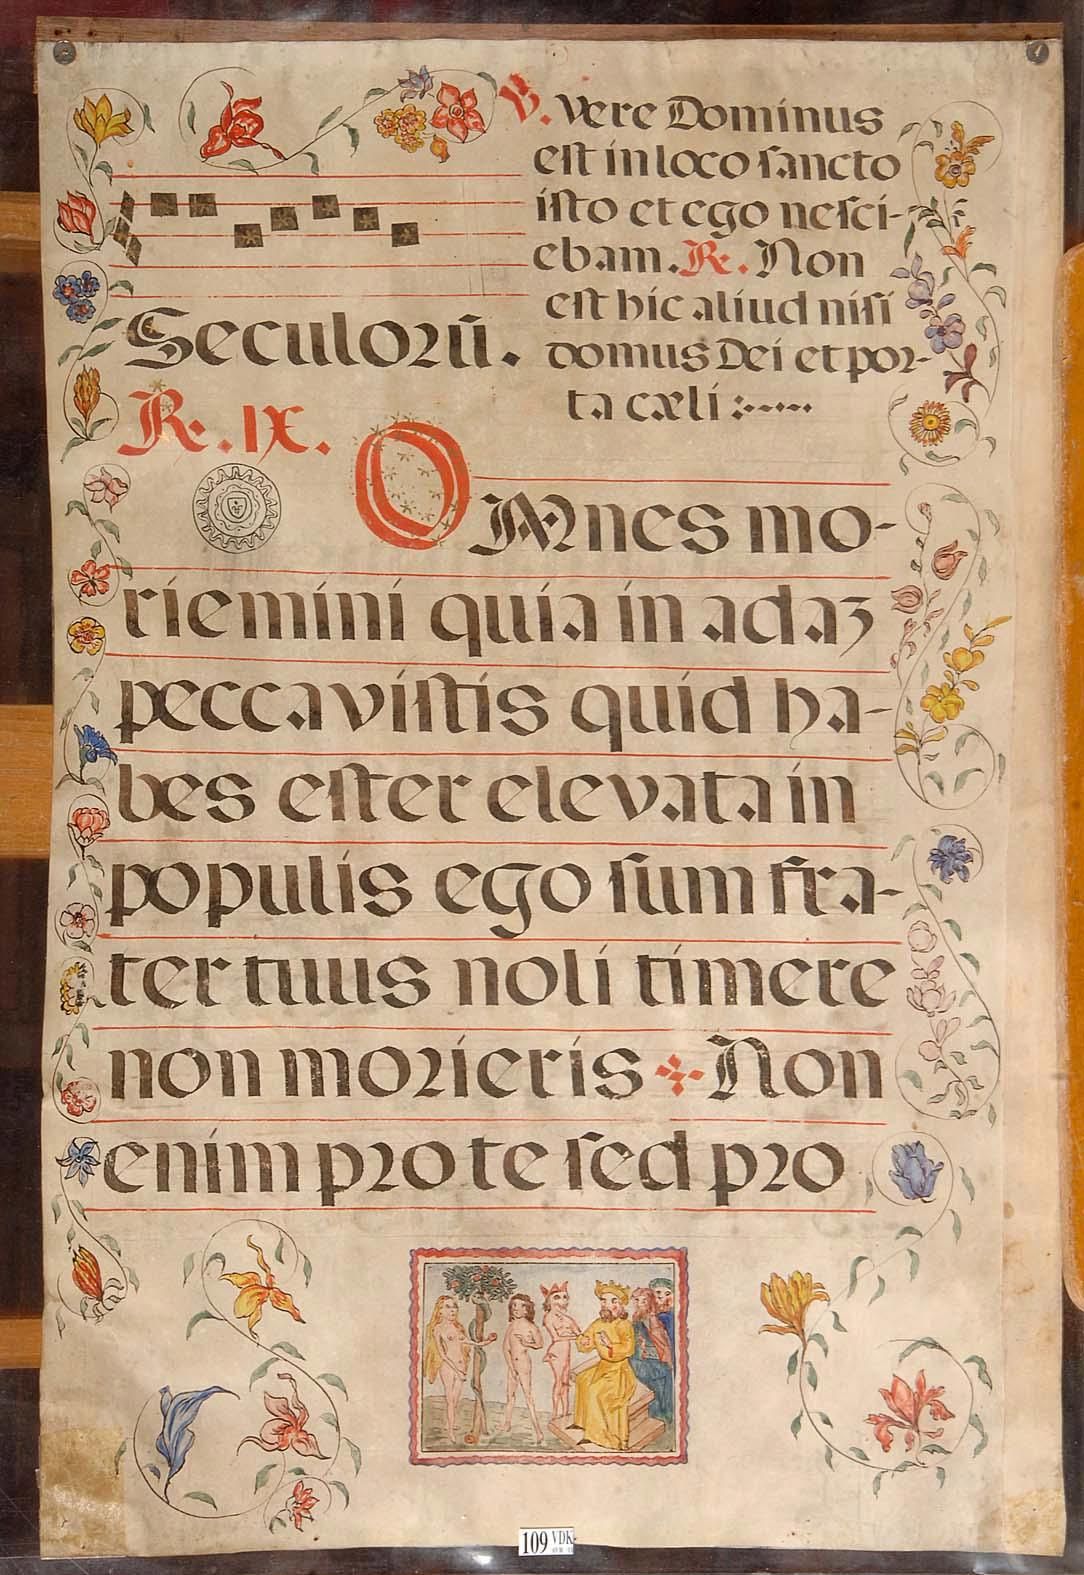 Seculorũ.
℣. Vere Dominus
est in loco sancto
isto et ego nesci-
ebam. ℟. Non
est hic aliud nisi
domus Dei et por-
ta cæli :----
℟. IX.
OMnes mo-
riemini quia in adaʒ
peccavistis quid ha-
bes ester elevata in
populis ego sum fra-
ter tuus noli timere
non morieris Non
enim pro te sed pro
109 VDK